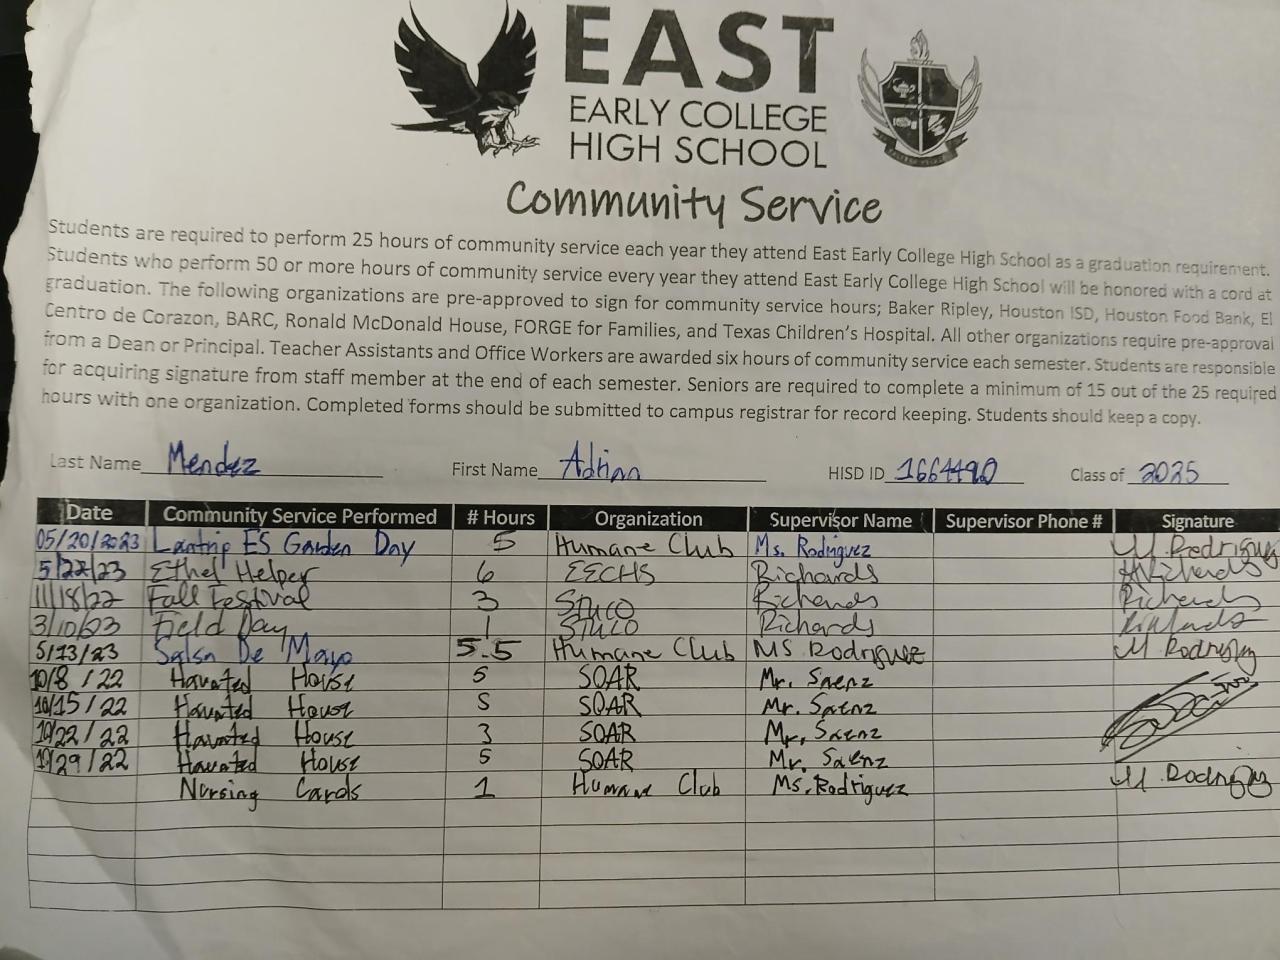 EAST
EARLY COLLEGE
HIGH SCHOOL
Community Service
Students are required to perform 25 hours of community service each year they attend East Early College High School as a graduation requirement.
Students who perform 50 or more hours of community service every year they attend East Early College High School will be honored with a cord at
graduation. The following organizations are pre-approved to sign for community service hours; Baker Ripley, Houston ISD, Houston Food Bank, El
Centro de Corazon, BARC, Ronald McDonald House, FORGE for Families, and Texas Children's Hospital. All other organizations require pre-approval
from a Dean or Principal. Teacher Assistants and Office Workers are awarded six hours of community service each semester. Students are responsible
for acquiring signature from staff member at the end of each semester. Seniors are required to complete a minimum of 15 out of the 25 required
hours with one organization. Completed forms should be submitted to campus registrar for record keeping. Students should keep a copy.
Last Name Mendez First Name Adrian HISD ID 1664490 Class of 2025
Date Community Service Performed # Hours Organization Supervisor Name Supervisor Phone # Signature
05/20/2023 Lantrip ES Garden Day 5 Humane Club Ms. Rodriguez M Rodriguez
5/22/23 Ethel Helper 6 EECHS Richards Richards
11/18/22 Fall Festival 3 STUCO Richards Richards
3/10/23 Field Day 1 STUCO Richards Richards
5/13/23 Salsa De Mayo 5.5 Humane Club MS Rodriguez M Rodriguez
10/8/22 Haunted House 5 SOAR Mr. Saenz
10/15/22 Haunted House 5 SOAR Mr. Saenz
10/22/22 Haunted House 3 SOAR Mr. Saenz
10/29/22 Haunted House 5 SOAR Mr. Saenz
Nursing Cards 1 Humane Club Ms. Rodriguez M Rodriguez